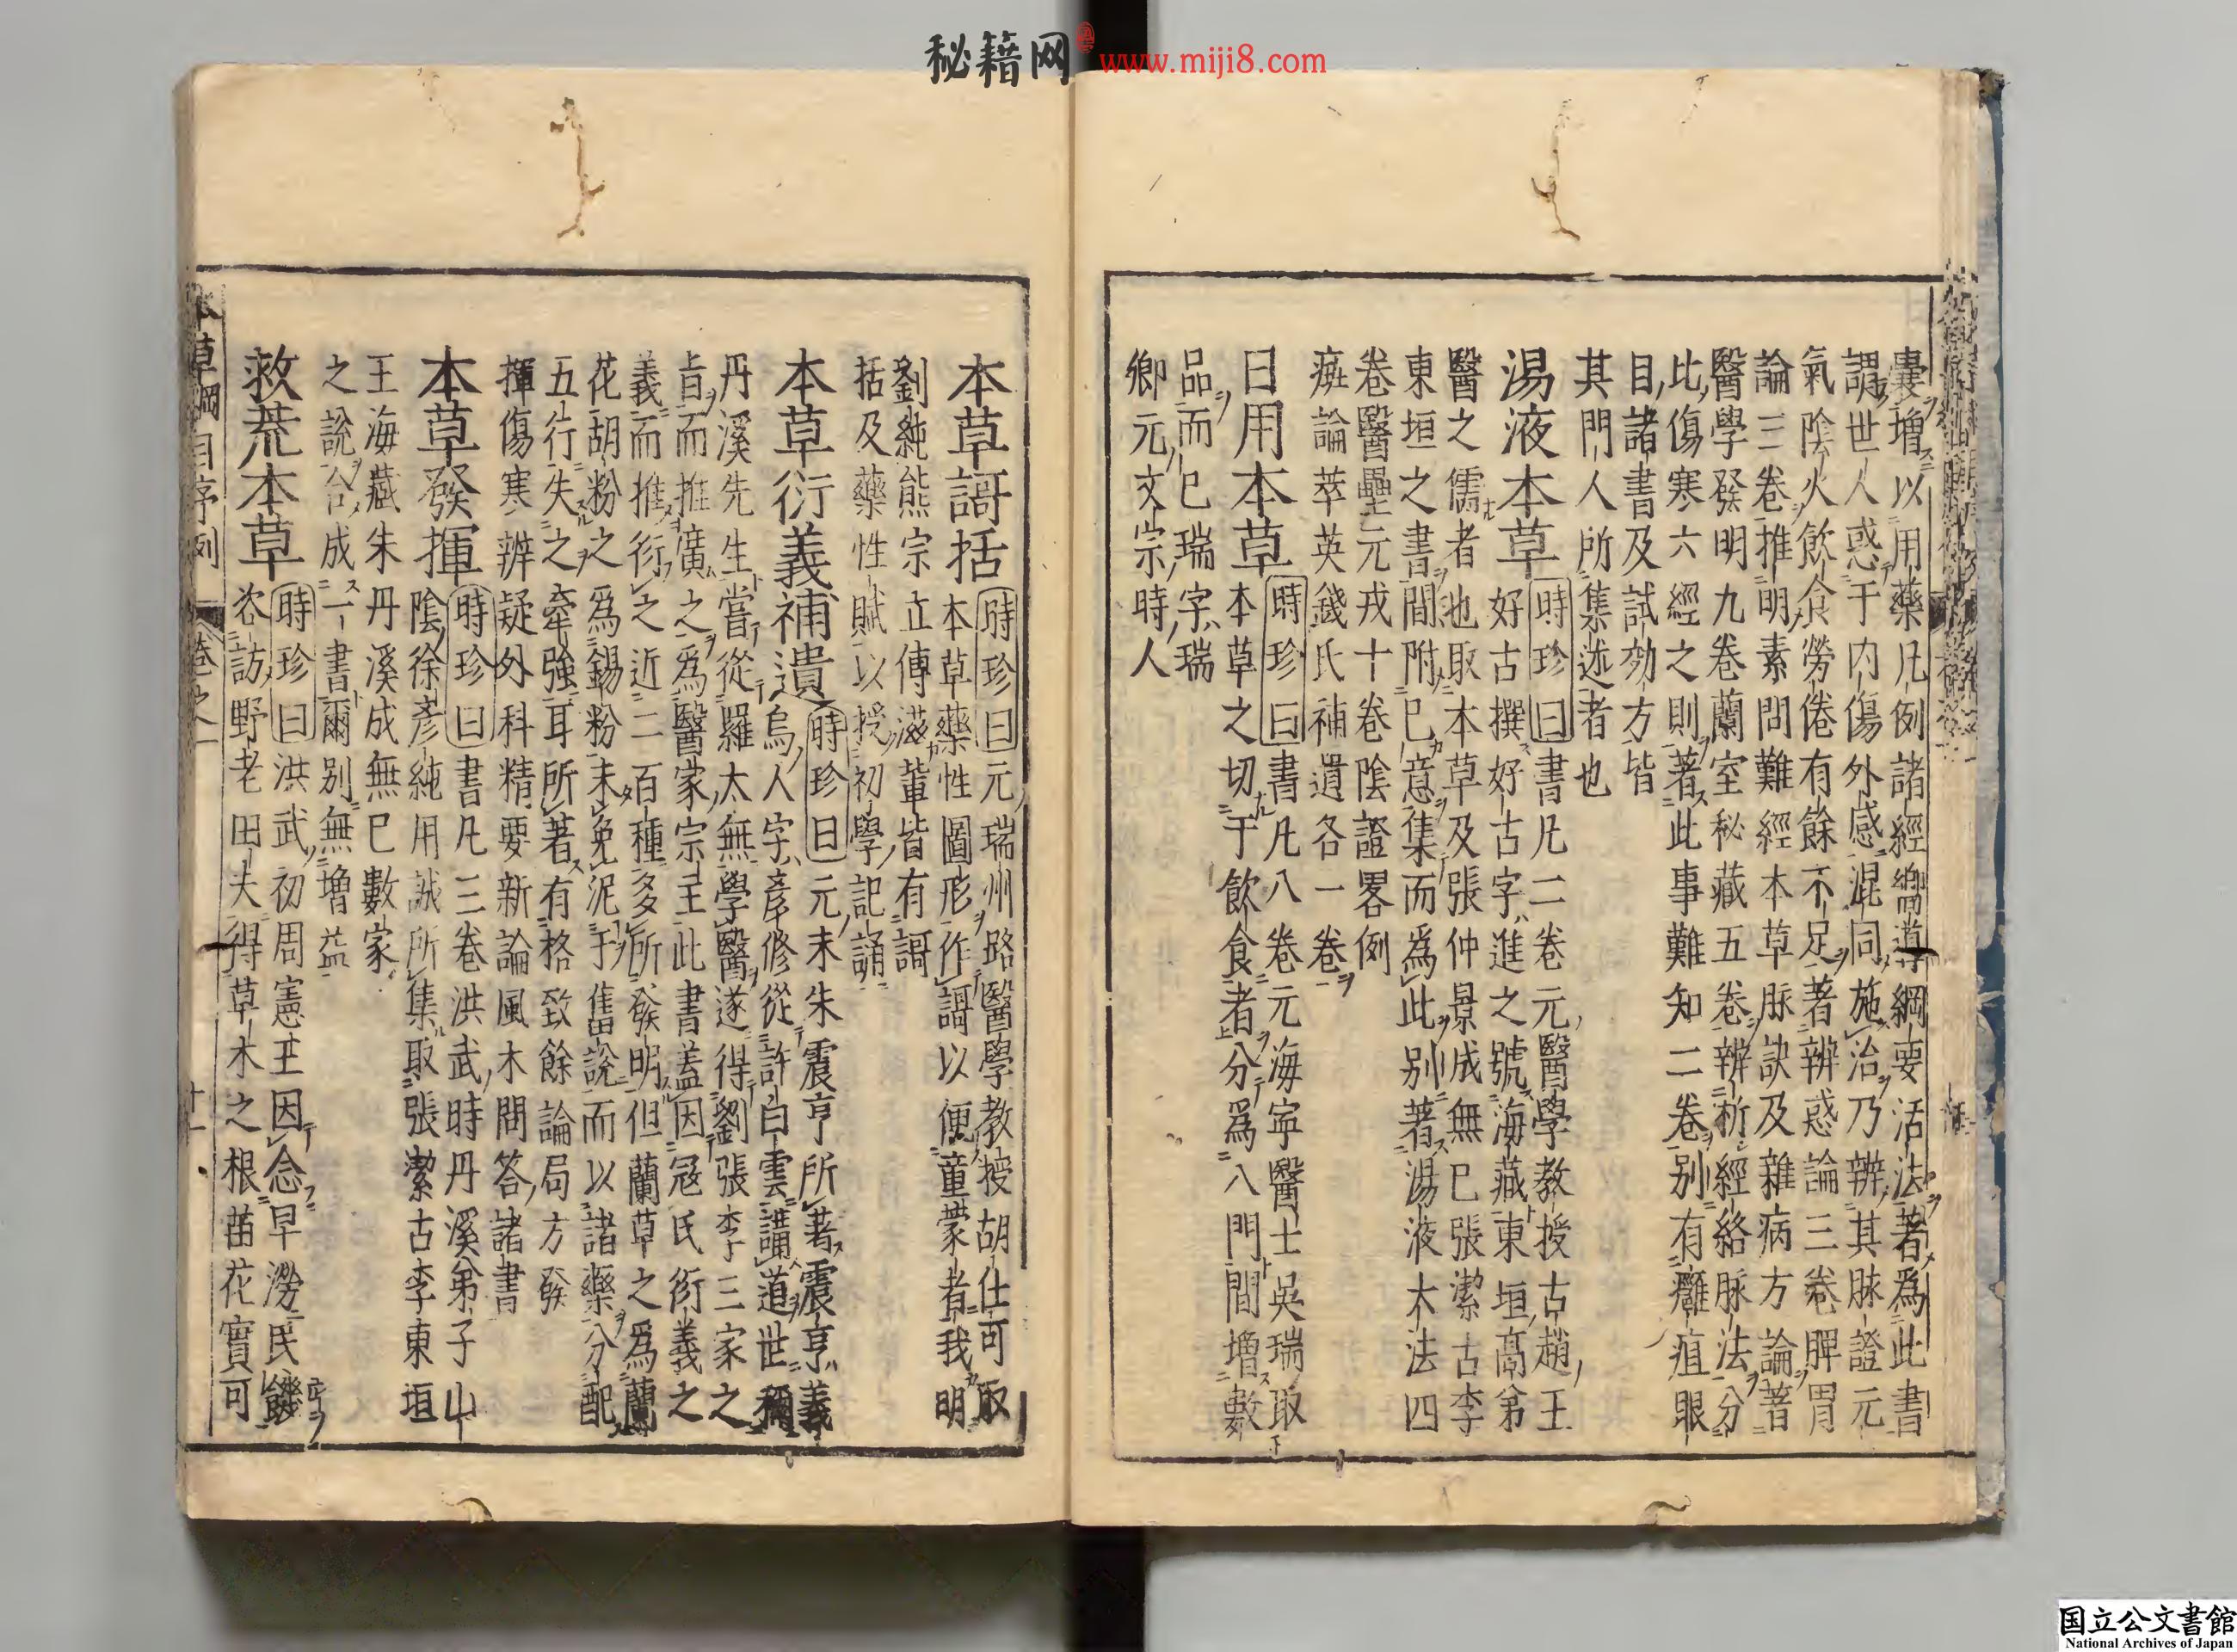 秘籍网 www.miji8.com
囊増以用藥凡例諸經嚮導綱要活法著爲此書
謂世人惑于内傷外感混同施治乃辨其脉證元
氣陰火飲食勞倦有餘不足著辨惑論三卷脾胃
論三卷推明素問難經本草脉訣及雜病方論著
醫學發明九卷蘭室秘藏五卷辨析經絡脉法分
比傷寒六經之則著此事難知二卷别有癰疽眼
目諸書及試効方皆
其門人所集述者也
湯液本草 時珍曰書凡二卷元醫學教授古趙王
好古撰好古字進之號海藏東垣高弟
醫之儒者也取本草及張仲景成無已張潔古李
東垣之書間附已意集而爲此别著湯液大法四
卷醫壘元戎十卷陰證畧例
癍論萃英錢氏補遺各一卷
日用本草 時珍曰書凡八卷元海寧醫士吳瑞取
本草之切于飲食者分爲八門間增數
品而已瑞字瑞
卿元文宗時人
本草謌括 時珍曰元瑞州路醫學教授胡仕可取
本草藥性圖形作謌以便童蒙者我明
劉純熊宗立傳滋軰皆有謌
括及藥性賦以授初學記誦
本草衍義補遺 時珍曰元末朱震亨所著震亨義
烏人字彥修從許白雲講道世稱
丹溪先生嘗從羅太無學醫遂得劉張李三家之
旨而推廣之爲醫家宗主此書盖因冦氏衍義之
義而推衍之近二百種多所發明但蘭草之爲蘭
花胡粉之爲錫粉未免泥于舊說而以諸藥分配
五行失之牽強耳所著有格致餘論局方發
揮傷寒辨疑外科精要新論風木問答諸書
本草發揮 時珍曰書凡三卷洪武時丹溪弟子山
陰徐彥純用誠所集取張潔古李東垣
王海藏朱丹溪成無已數家
之說合成一書爾别無增益
救荒本草 時珍曰洪武初周憲王因念旱澇民饑
咨訪野老田夫得草木之根苗花實可
本草綱目序例 卷之一 十一
国立公文書館
National Archives of Japan